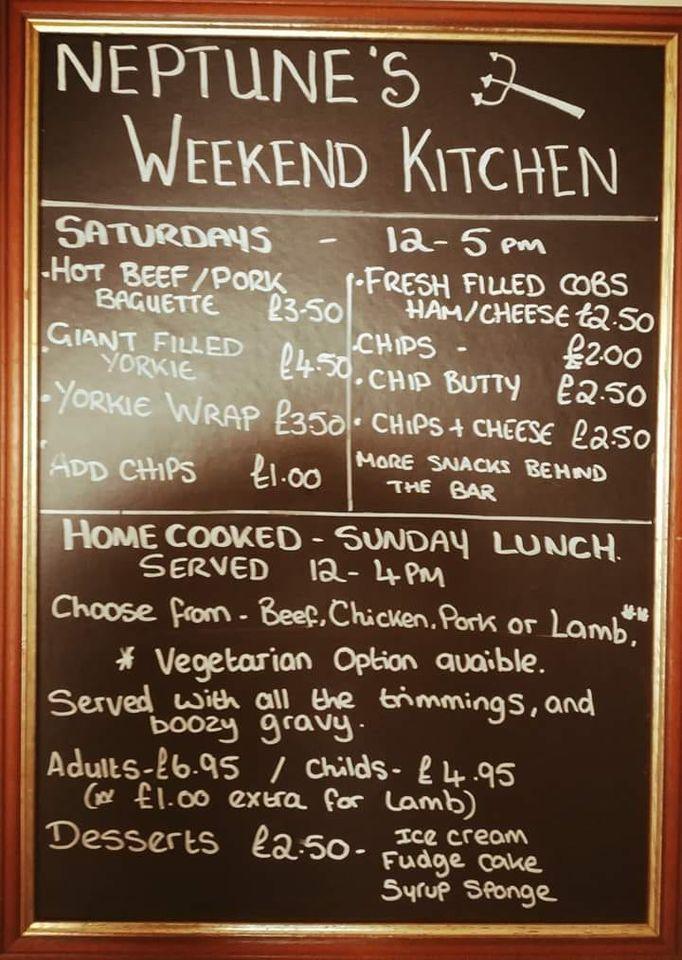 NEPTUNE'S
WEEKEND KITCHEN
SATURDAYS - 12-5 pm
·HOT BEEF/PORK
BAGUETTE £3-50
·GIANT FILLED
YORKIE £4.50
·YORKIE WRAP £350
·ADD CHIPS £1.00
·FRESH FILLED COBS
HAM/CHEESE £2.50
·CHIPS - £2.00
·CHIP BUTTY £2.50
·CHIPS + CHEESE £2.50
MORE SNACKS BEHIND
THE BAR
HOME COOKED - SUNDAY LUNCH.
SERVED 12-4PM
Choose from - Beef, Chicken, Pork or Lamb.**
* Vegetarian Option avaible.
Served with all the trimmings, and
boozy gravy.
Adults-£6.95 / Childs- £4.95
(** £1.00 extra for Lamb)
Desserts £2.50- Ice cream
Fudge cake
Syrup Sponge